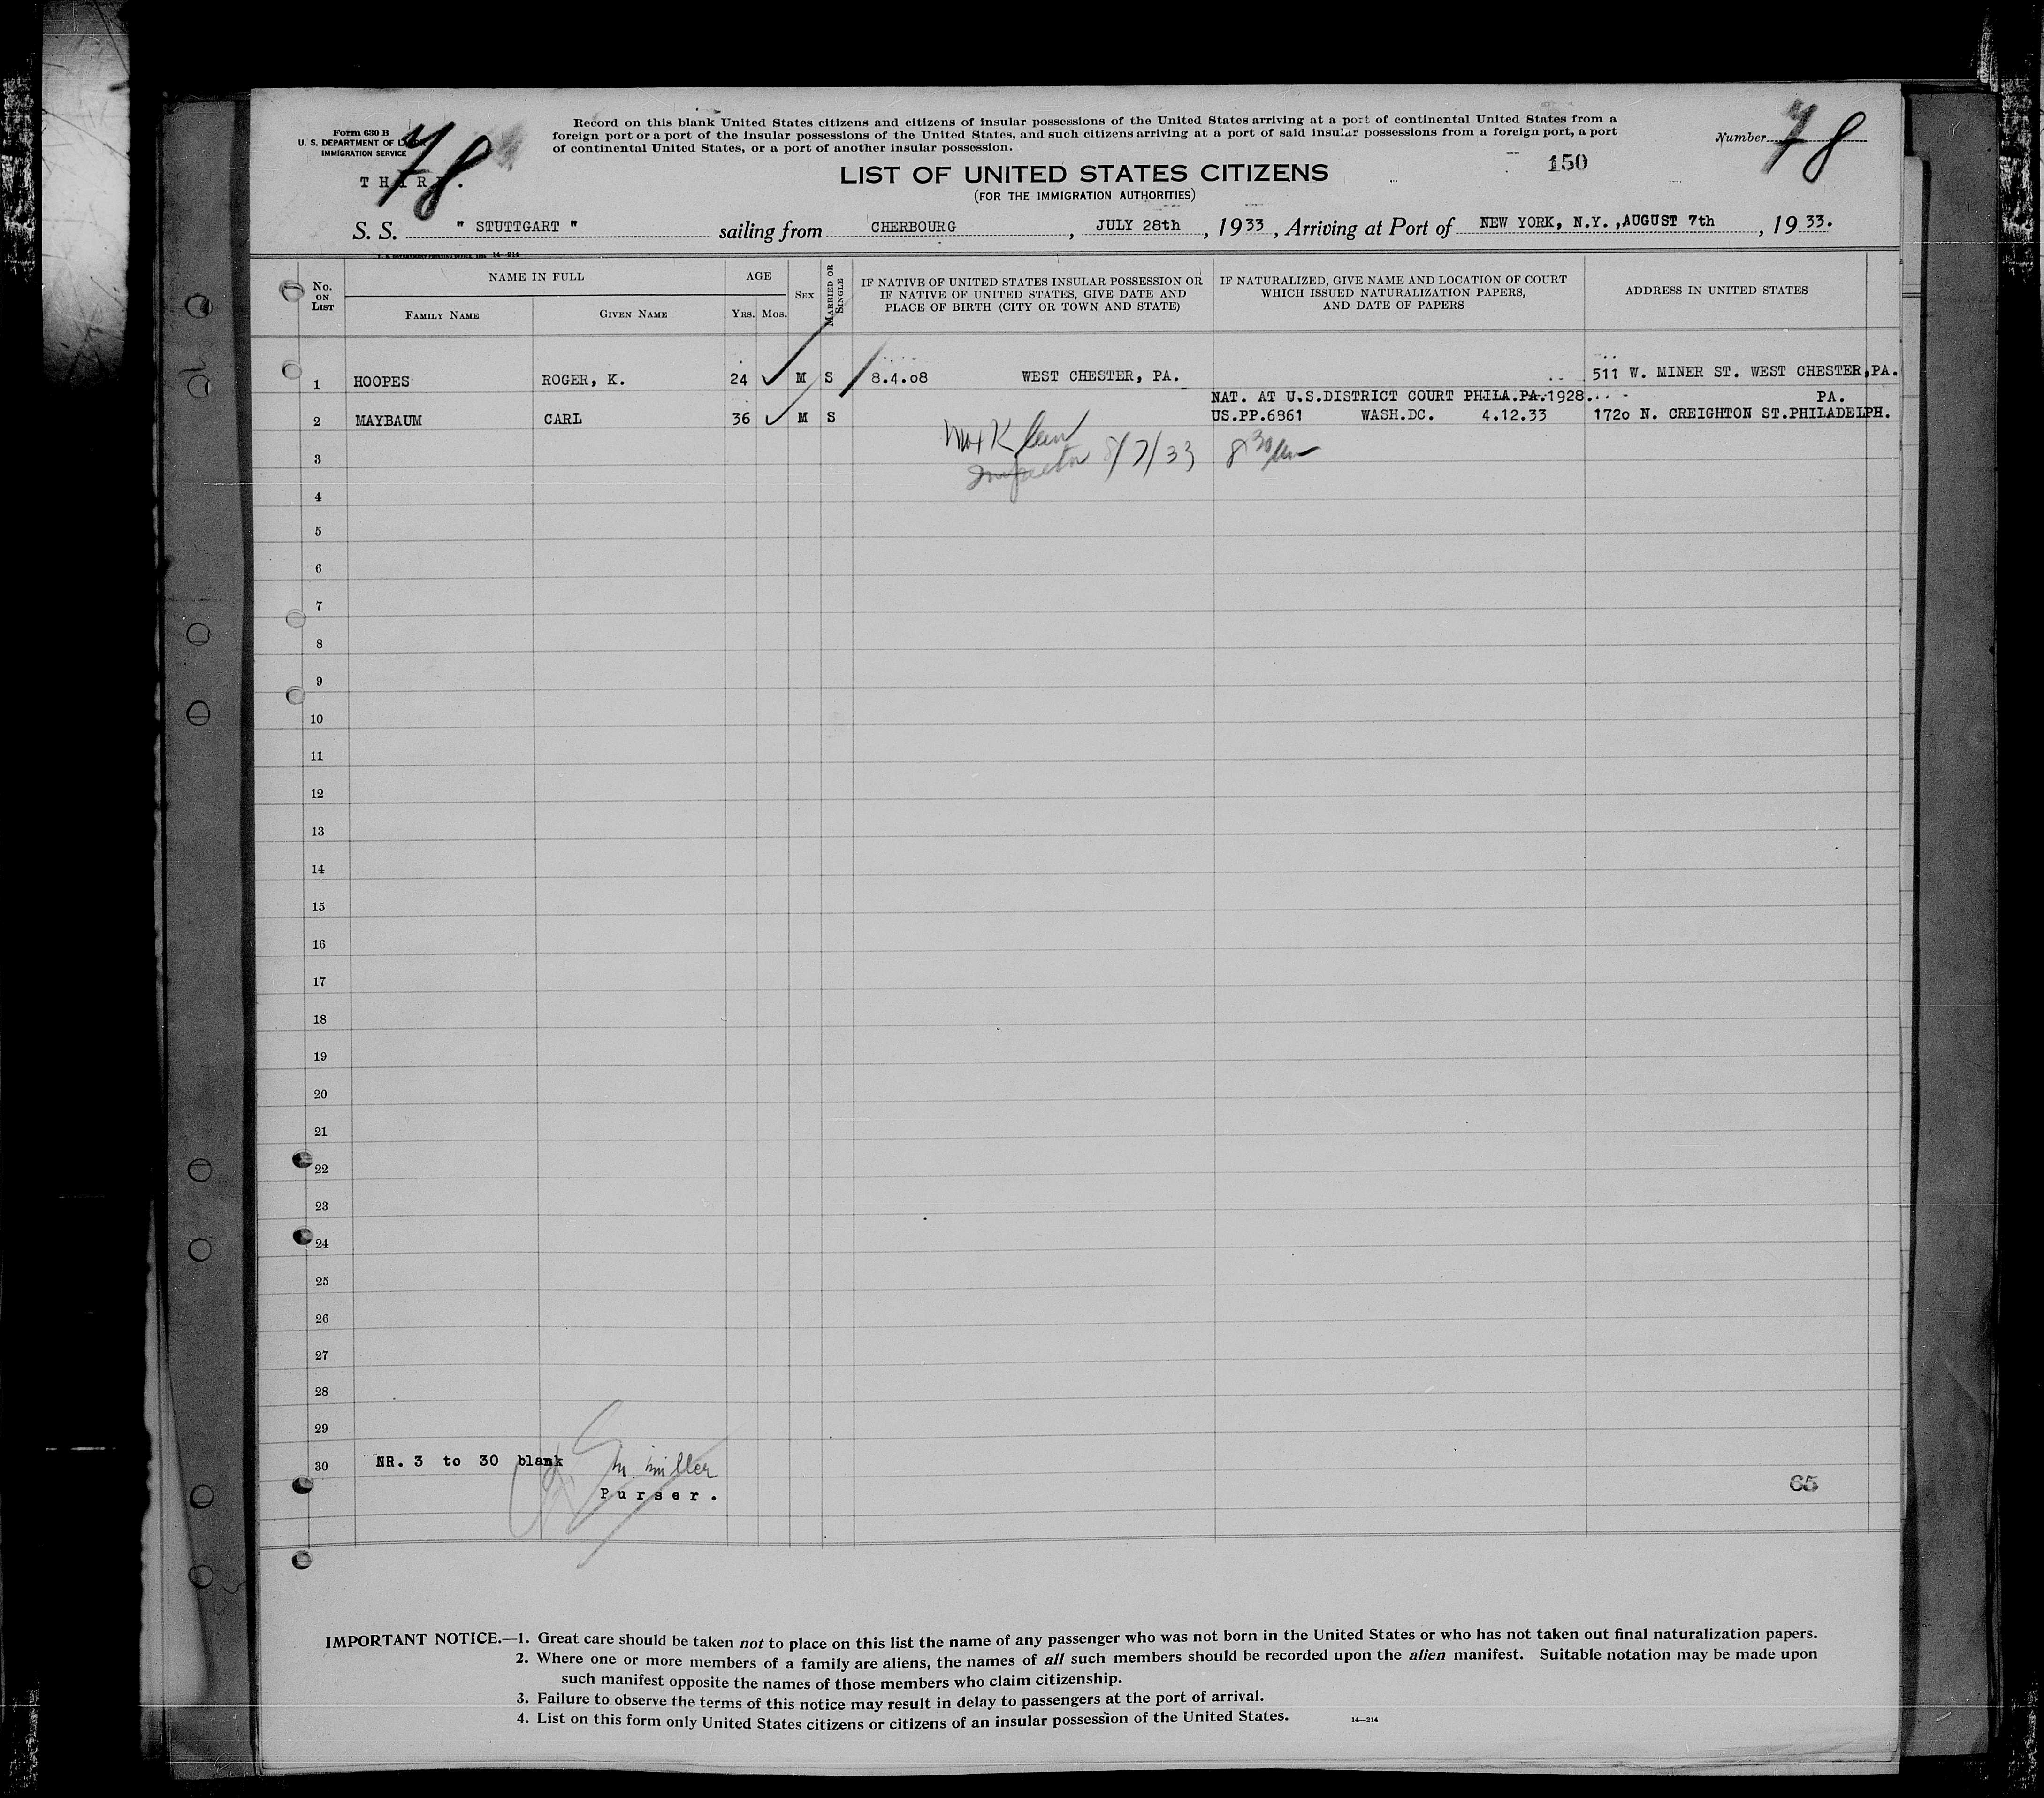 Form 630 B
U. S. DEPARTMENT OF LABOR
IMMIGRATION SERVICE
THIRD.
78
Record on this blank United States citizens and citizens of insular possessions of the United States arriving at a port of continental United States from a
foreign port or a port of the insular possessions of the United States, and such citizens arriving at a port of said insular possessions from a foreign port, a port
of continental United States, or a port of another insular possession.
Number 78
150
LIST OF UNITED STATES CITIZENS
(FOR THE IMMIGRATION AUTHORITIES)
S. S. " STUTTGART " sailing from CHERBOURG, JULY 28th, 1933, Arriving at Port of NEW YORK, N.Y.,AUGUST 7th, 1933.
14-214
No. ON LIST
NAME IN FULL
FAMILY NAME
GIVEN NAME
AGE
YRS. MOS.
SEX
MARRIED OR SINGLE
IF NATIVE OF UNITED STATES INSULAR POSSESSION OR
IF NATIVE OF UNITED STATES, GIVE DATE AND
PLACE OF BIRTH (CITY OR TOWN AND STATE)
IF NATURALIZED, GIVE NAME AND LOCATION OF COURT
WHICH ISSUED NATURALIZATION PAPERS,
AND DATE OF PAPERS
ADDRESS IN UNITED STATES
1 HOOPES ROGER, K. 24 ✓ M S 8.4.o8 WEST CHESTER, PA. 511 W. MINER ST. WEST CHESTER,PA.
NAT. AT U.S.DISTRICT COURT PHILA.PA.1928. PA.
2 MAYBAUM CARL 36 ✓ M S US.PP.6861 WASH.DC. 4.12.33 172o N. CREIGHTON ST.PHILADELPH.
Inspector 8/7/33 8 30
3
4
5
6
7
8
9
10
11
12
13
14
15
16
17
18
19
20
21
22
23
24
25
26
27
28
29
30 NR. 3 to 30 blank
M. Miller
Purser.
65
IMPORTANT NOTICE.—1. Great care should be taken not to place on this list the name of any passenger who was not born in the United States or who has not taken out final naturalization papers.
2. Where one or more members of a family are aliens, the names of all such members should be recorded upon the alien manifest. Suitable notation may be made upon
such manifest opposite the names of those members who claim citizenship.
3. Failure to observe the terms of this notice may result in delay to passengers at the port of arrival.
4. List on this form only United States citizens or citizens of an insular possession of the United States. 14—214